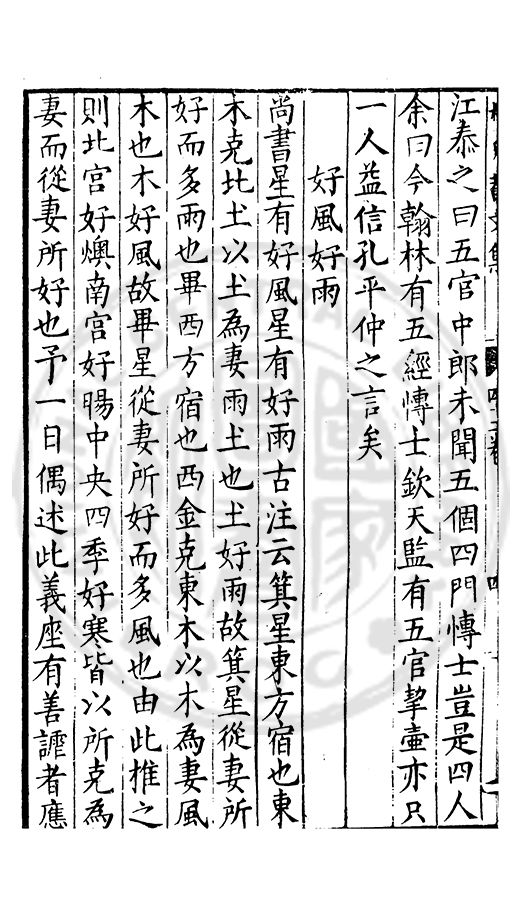 江泰之曰五官中郎未聞五個四門愽士豈是四人
余曰今翰林有五經愽士欽天監有五官挈壷亦只
一人益信孔平仲之言矣
好風好雨
尚書星有好風星有好雨古注云箕星東方宿也東
木克北土以土為妻雨土也土好雨故箕星從妻所
好而多雨也畢西方宿也西金克東木以木為妻風
木也木好風故畢星從妻所好而多風也由此推之
則北宮好燠南宮好暘中央四季好寒皆以所克為
妻而從妻所好也予一日偶述此義座有善謔者應